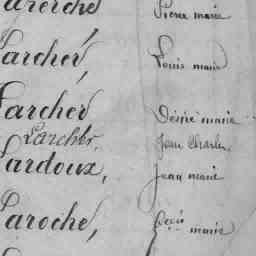 Larcher Pierre marie
Larcher, Louis marie
Larcher Désiré marie
Larcher Jean Charles
Lardoux, Jean marie
Laroche, marie